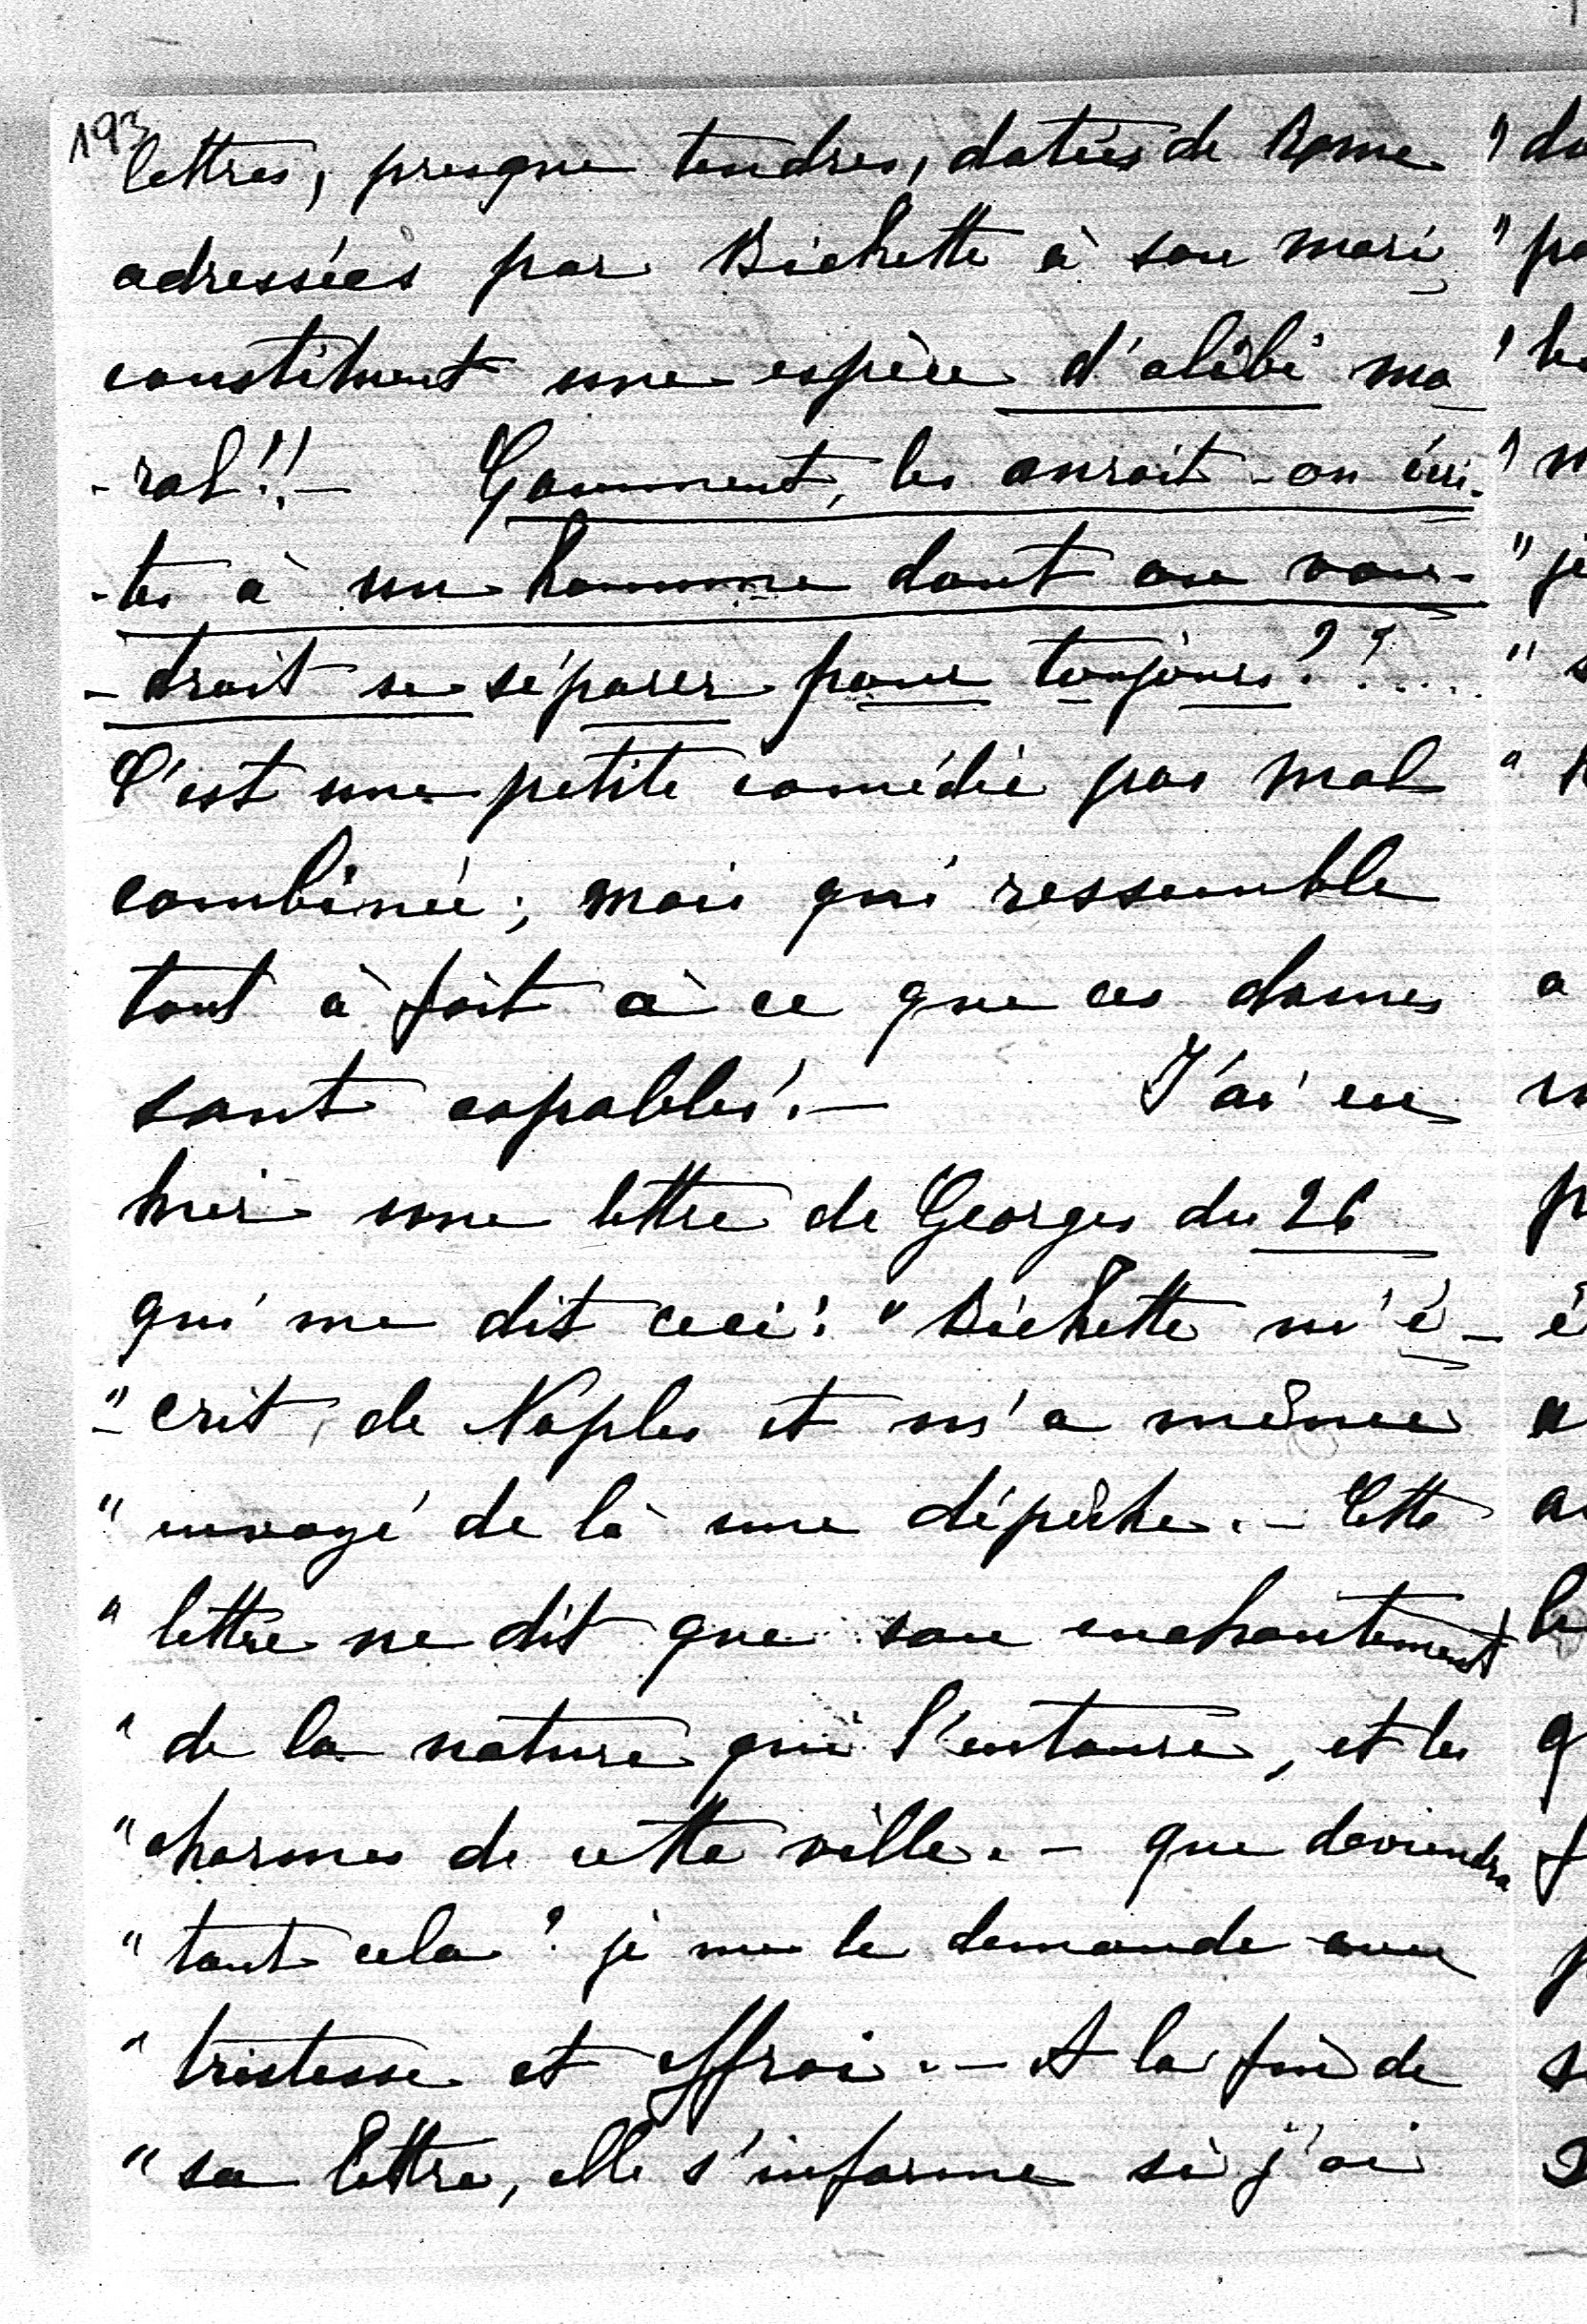 193
lettres, presque tendres, datées de Rome
adressées par Bichette à son mari
constituent une espèce d'alibi mo
-ral!! - Comment, les auroit-on écri-
-tes à un homme dont on vou-
-droit se séparer pour toujours??....
C'est une petite comédie pas mal
combinée; mais qui ressemble
tout à fait à ce que ces dames
sont capables. - J'ai eu
hier une lettre de Georges du 26
qui me dit ceci: "Bichette m'é-
"-crit, de Naples et m'a même
"envoyé de là une dépêche. - Cette
"lettre ne dit que son enchantement
"de la nature qui l'entoure, et les
"charmes de cette ville. - que deviendra
"tout cela? je me le demande avec
"tristesse et effroi. - A la fin de
"sa lettre, elle s'informe si j'ai